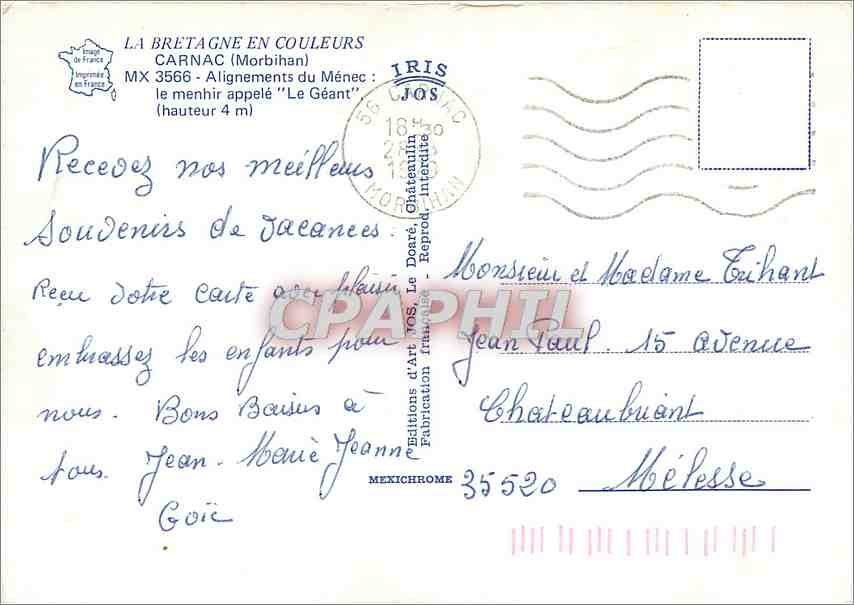 Image
de France
Imprimée
en France
LA BRETAGNE EN COULEURS
CARNAC (Morbihan)
MX 3566 - Alignements du Ménec :
le menhir appelé "Le Géant".
(hauteur 4 m)
IRIS
JOS
56 CARNAC
18H30
MORBIHAN
Recevez nos meilleurs
souvenirs de vacances.
Reçu votre carte avec plaisir
embrassez les enfants pour
nous. Bons Baisers à
tous. Jean-Marie Jeanne
Goïc
Editions d'Art JOS, Le Doaré, Châteaulin
Fabrication française - Reprod. interdite
MEXICHROME
Monsieur et Madame Trihant
Jean Paul. 15 avenue
Chateaubriant
35520 Mélesse
CPAPHIL